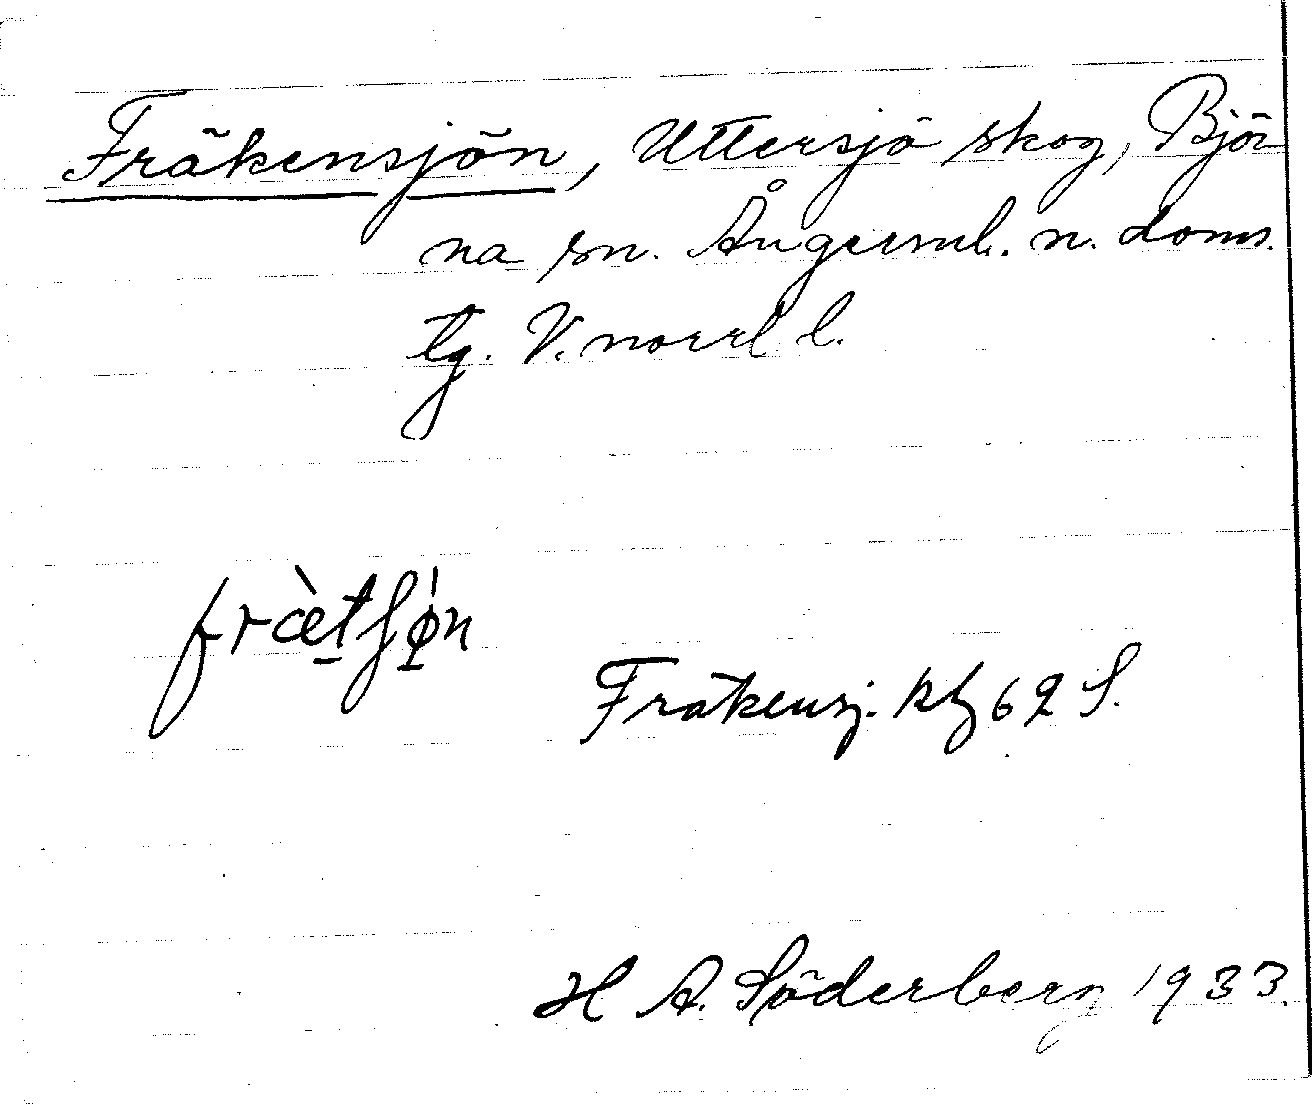 Fräkensjön, Uttersjö skog, Björ
na sn. Ångerml. n. doms.
tg. V. norrl l.
fræ̀tʃøn
Fräkensj. kbl 62 S.
H A. Söderberg 1933.